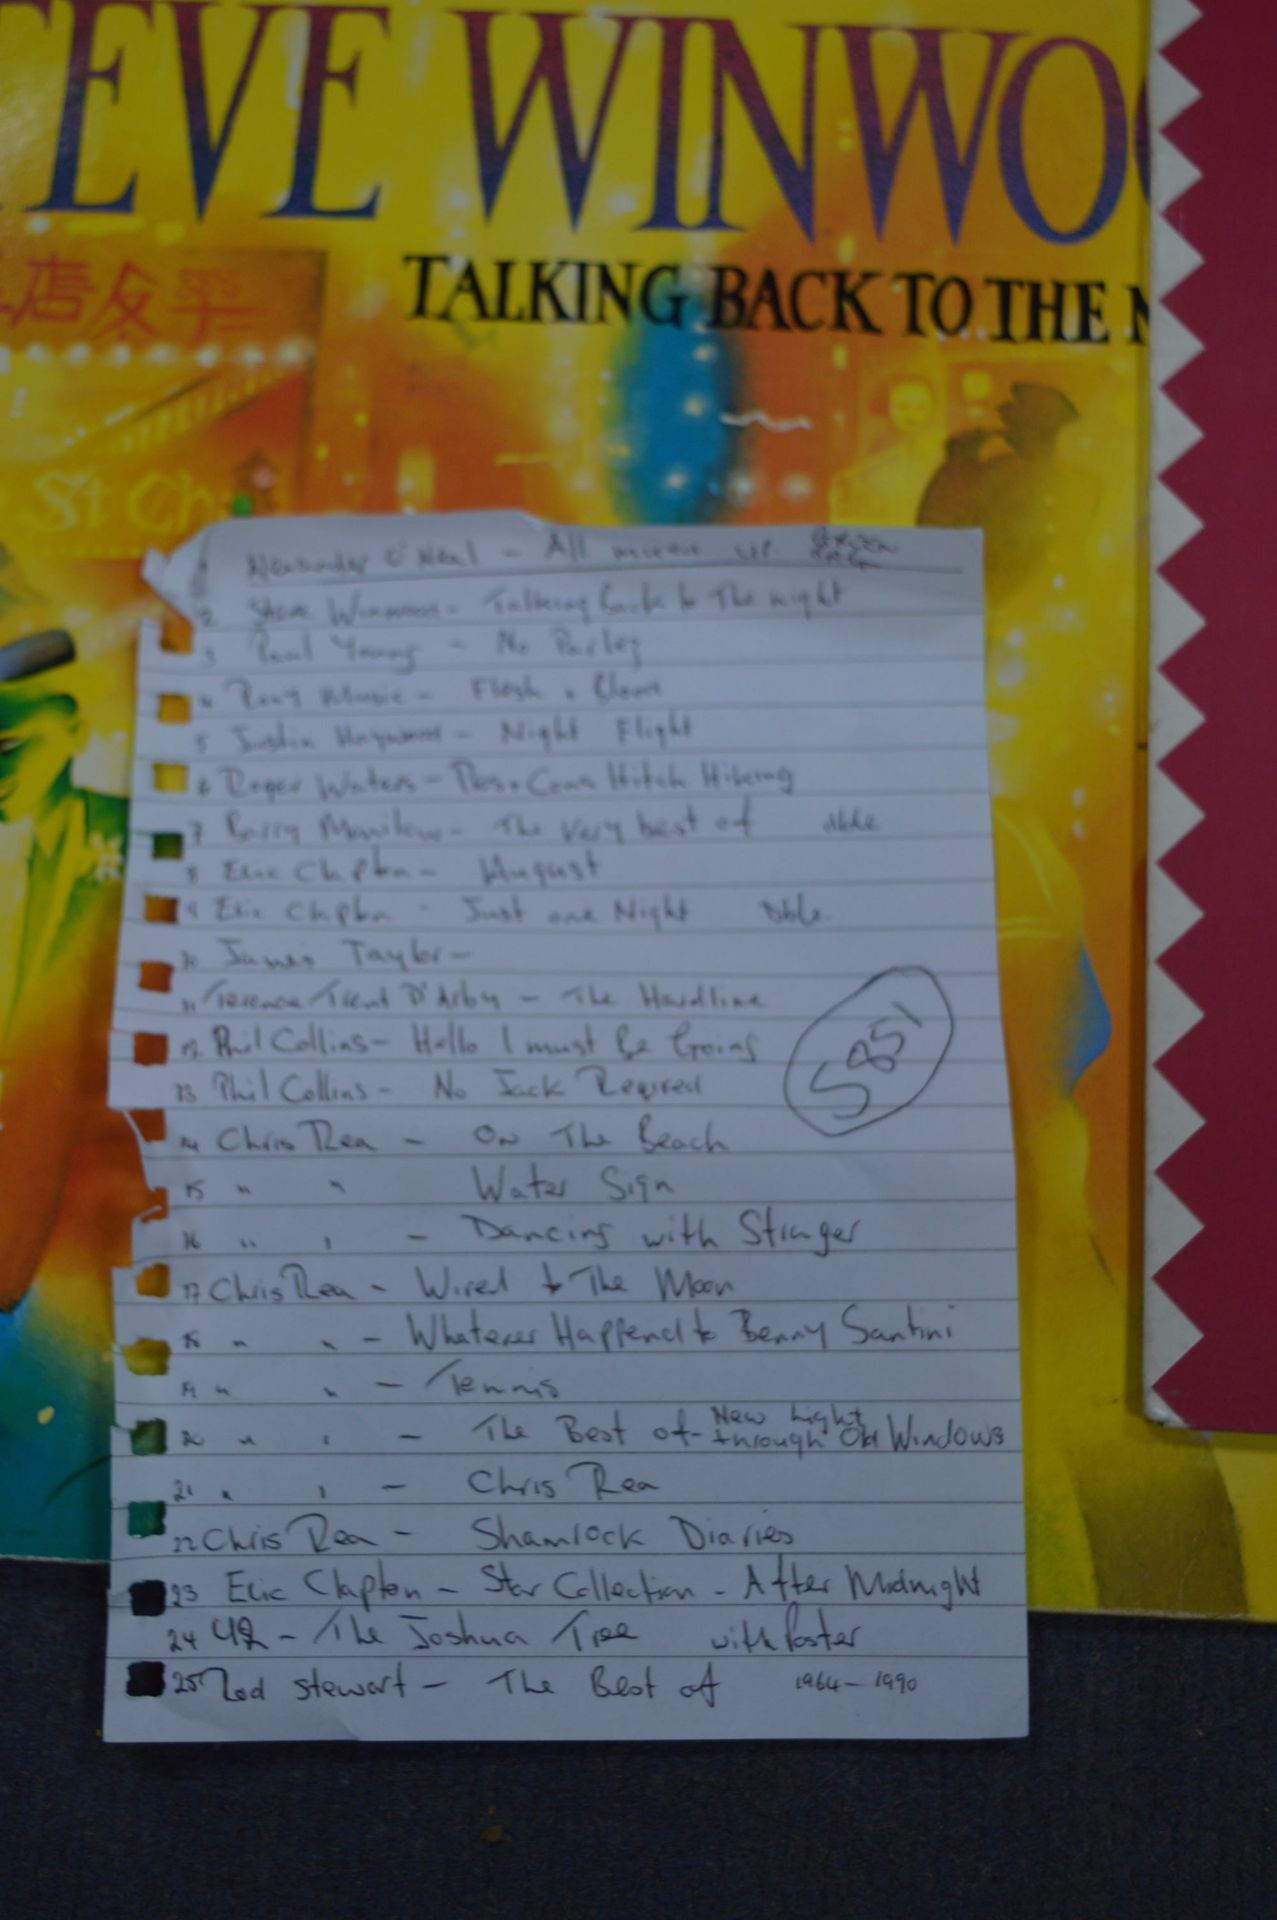 TEVE WINWOO
TALKING BACK TO THE N
St Ch
1 Alexander O'Neal - All mixed up
2 Steve Winwood - Talking Back to The night
3 Paul Young - No Parlez
4 Roxy Music - Flesh + Blood
5 Justin Hayward - Night Flight
6 Roger Waters - Pros + Cons Hitch Hiking
7 Barry Manilow - The Very best of dble
8 Eric Clapton - August
9 Eric Clapton - Just one Night Dble.
10 James Taylor -
11 Terence Trent D'Arby - The Hardline
12 Phil Collins - Hello I must Be Going
13 Phil Collins - No Jack Reqired
5851
14 Chris Rea - On The Beach
15 " " Water Sign
16 " " - Dancing with Stranger
17 Chris Rea - Wired to The Moon
18 " " - Whatever Happened to Benny Santini
19 " " - Tennis
20 " " - The Best of - New Light through Old Windows
21 " " - Chris Rea
22 Chris Rea - Shamrock Diaries
23 Eric Clapton - Star Collection - After Midnight
24 U2 - The Joshua Tree with Poster
25 Rod Stewart - The Best of 1964 - 1990